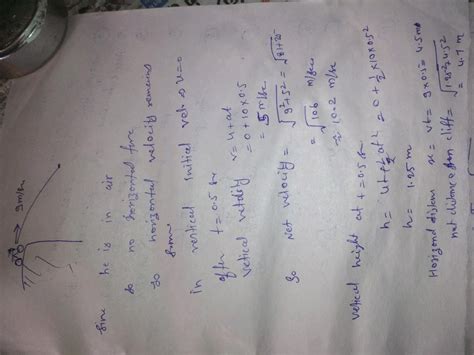 9m/sec
Sine he is in air
so no horizontal force
so horizontal velocity remains
same
in vertical initial velo's u=0
after t=0.5 sec
vetical vetdity v=u+at
=0+10×0.5
=5m/sec
So Net velocity = √9²+5² = √81+25
= √106 m/sec
≈ 10.2 m/se
Vetical height at t=0.5 se
h = ut+½at² = 0+½×10×0.5²
h = 1.25 m
Horizond distan x = vt = 9×0.5 = 4.5m
net distance from cliff = √1.25²+4.5²
= 4.7 m